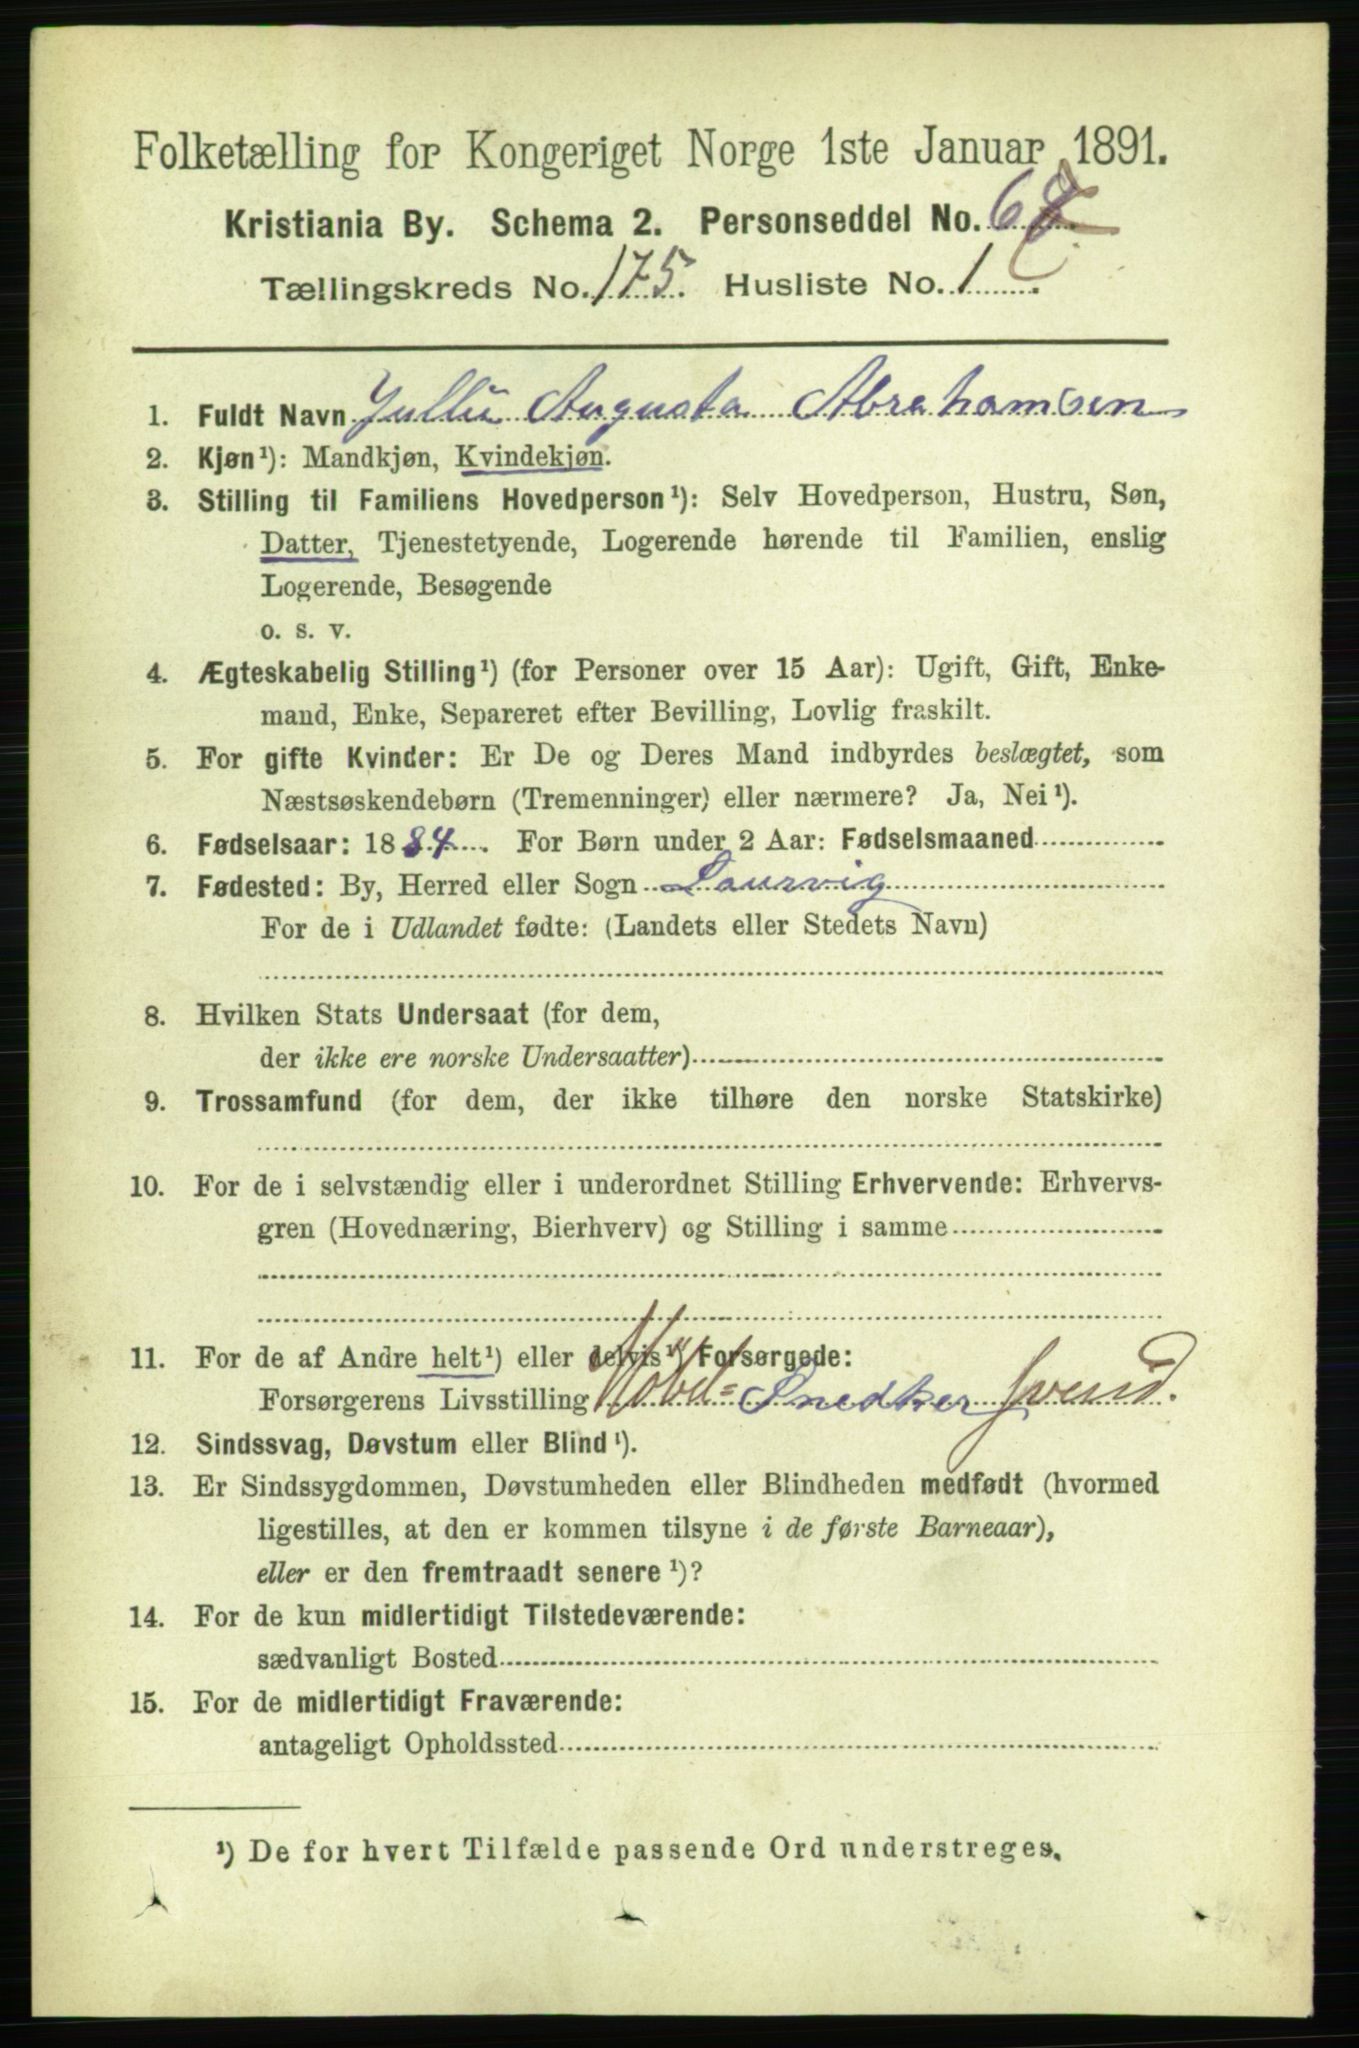 Folketælling for Kongeriget Norge 1ste Januar 1891.
Kristiania By. Schema 2. Personseddel No. 67
Tællingskreds No. 175. Husliste No. 1
1. Fuldt Navn Jullie Augusta Abrahamsen
2. Kjøn¹): Mandkjøn, Kvindekjøn.
3. Stilling til Familiens Hovedperson¹): Selv Hovedperson, Hustru, Søn,
Datter, Tjenestetyende, Logerende hørende til Familien, enslig
Logerende, Besøgende
o. s. v.
4. Ægteskabelig Stilling¹) (for Personer over 15 Aar): Ugift, Gift, Enke-
mand, Enke, Separeret efter Bevilling, Lovlig fraskilt.
5. For gifte Kvinder: Er De og Deres Mand indbyrdes beslægtet, som
Næstsøskendebørn (Tremenninger) eller nærmere? Ja, Nei¹).
6. Fødselsaar: 1884. For Børn under 2 Aar: Fødselsmaaned
7. Fødested: By, Herred eller Sogn Laurvig
For de i Udlandet fødte: (Landets eller Stedets Navn)
8. Hvilken Stats Undersaat (for dem,
der ikke ere norske Undersaatter)
9. Trossamfund (for dem, der ikke tilhøre den norske Statskirke)
10. For de i selvstændig eller i underordnet Stilling Erhvervende: Erhvervs-
gren (Hovednæring, Bierhverv) og Stilling i samme
11. For de af Andre helt¹) eller delvis¹) Forsørgede:
Forsørgerens Livsstilling Møbel= Snedker Svend.
12. Sindssvag, Døvstum eller Blind¹).
13. Er Sindssygdommen, Døvstumheden eller Blindheden medfødt (hvormed
ligestilles, at den er kommen tilsyne i de første Barneaar),
eller er den fremtraadt senere¹)?
14. For de kun midlertidigt Tilstedeværende:
sædvanligt Bosted
15. For de midlertidigt Fraværende:
antageligt Opholdssted
¹) De for hvert Tilfælde passende Ord understreges.